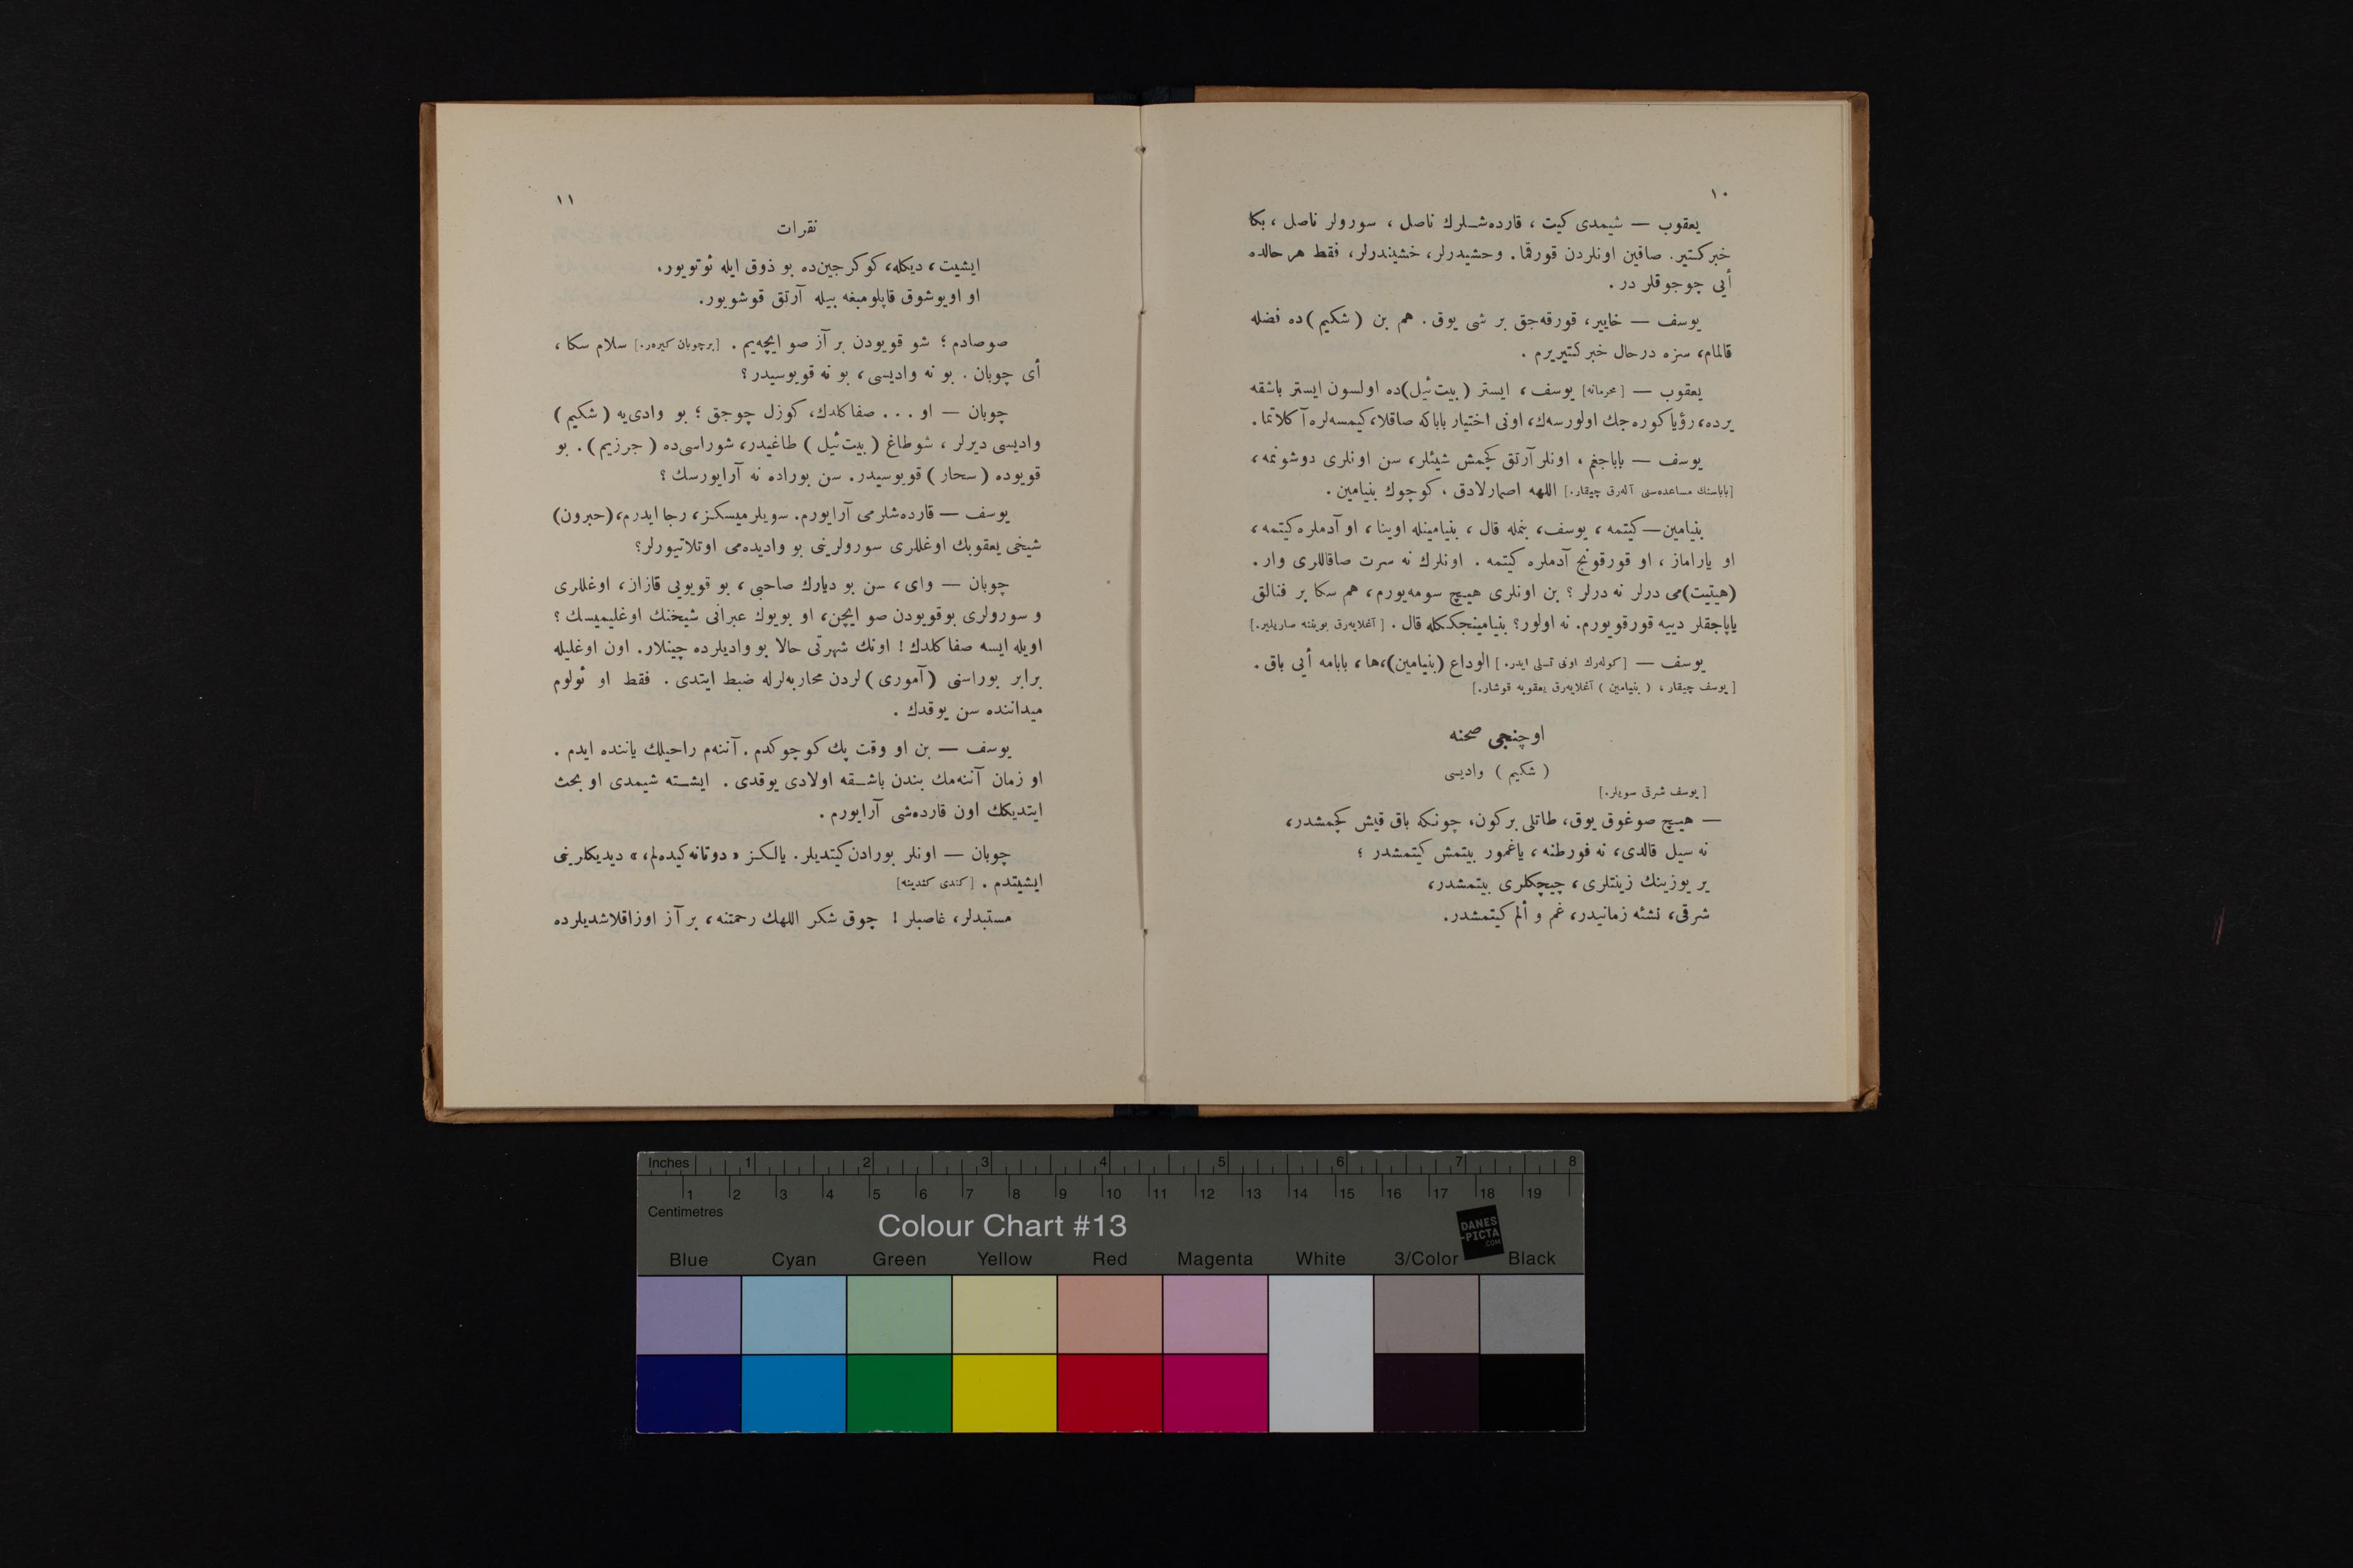 ١٠
يعقوب — شيمدى كيت ، قارده‌شلرك ناصل ، سورولر ناصل ، بكا
خبر كتير. صاقين اونلردن قورقما. وحشيدرلر، خشيندرلر، فقط هر حالده
أيى چوجوقلر در .
يوسف — خايير، قورقه‌جق بر شى يوق. هم بن (شكيم)ده فضله
قالمام، سزه درحال خبر كتيريرم .
يعقوب — [محرمانه] يوسف، ايستر (بيت‌ئيل)ده اولسون ايستر باشقه
يرده، رؤيا كوره‌جك اولورسه‌ك، اونى اختيار باباكه صاقلا، كيمسه‌لره آكلاتما.
يوسف — باباجغم ، اونلر آرتق كچمش شيئلر، سن اونلرى دوشونمه،
[باباسنك مساعده‌سنى آله‌رق چيقار.] اللهه اصمارلادق ، كوچوك بنيامين .
بنيامين — كيتمه ، يوسف، بنمله قال ، بنيامينله اوينا، او آدملره كيتمه،
او ياراماز ، او قورقونج آدملره كيتمه . اونلرك نه سرت صاقاللرى وار.
(هيتيت)مى درلر نه درلر ؟ بن اونلرى هيچ سومه‌يورم، هم سكا بر فنالق
ياپاجقلر دييه قورقويورم. نه اولور؟ بنيامينجككله قال . [آغلايه‌رق بوينه صاريلير.]
يوسف — [كوله‌رك اونى تسلى ايدر.] الوداع (بنيامين)،ها، بابامه أيى باق.
[يوسف چيقار ، (بنيامين) آغلايه‌رق يعقوبه قوشار.]
اوچنجى صحنه
(شكيم) واديسى
[يوسف شرقى سويلر.]
— هيچ صوغوق يوق، طاتلى بركون، چونكه باق قيش كچمشدر،
نه سيل قالدى، نه فورطنه ، ياغمور بيتمش كيتمشدر ؛
ير يوزينك زينتلرى، چيچكلرى بيتمشدر،
شرقى، نشئه زمانيدر، غم و ألم كيتمشدر.
١١
نقرات
ايشيت، ديكله، كوكرجين‌ده بو ذوق ايله ئوتويور.
او اويوشوق قاپلومبغه بيله آرتق قوشويور.
صوصادم ؛ شو قويودن بر آز صو ايچه‌يم . [برچوبان كيرهر.] سلام سكا،
أى چوبان. بو نه واديسى، بو نه قويوسيدر؟
چوبان — او ... صفا كلدك، كوزل چوجق ؛ بو وادى‌يه (شكيم)
واديسى ديرلر ، شوطاغ (بيت‌ئيل) طاغيدر، شوراسى‌ده (جرزيم). بو
قويوده (سحار) قويوسيدر. سن بوراده نه آرايورسك ؟
يوسف — قارده‌شلرمى آرايورم. سويلرميسكز، رجا ايدرم، (حبرون)
شيخى يعقوبك اوغللرى سورولرينى بو واديده‌مى اوتلاتيورلر؟
چوبان — واى، سن بو ديارك صاحبى، بو قويويى قازان، اوغللرى
و سورولرى بوقويودن صو ايچن، او بويوك عبرانى شيخنك اوغليميسك ؟
اويله ايسه صفا كلدك! اونك شهرتى حالا بو واديلرده چينلار. اون اوغليله
برابر بوراسنى (آمورى)لردن محاربه‌لرله ضبط ايتدى. فقط او ئولوم
ميداننده سن يوقدك .
يوسف — بن او وقت پك كوچوكدم. آننه‌م راحيلك ياننده ايدم .
او زمان آننه‌مك بندن باشقه اولادى يوقدى. ايشته شيمدى او بحث
ايتديكك اون قارده‌شى آرايورم .
چوبان — اونلر بورادن كيتديلر. يالكز «دوتانه كيده‌لم،» ديديكلرينى
ايشيتدم . [كندى كندينه]
مستبدلر، غاصبلر! چوق شكر اللهك رحمتنه، بر آز اوزاقلاشديلرده
Inches 1 2 3 4 5 6 7 8
1 2 3 4 5 6 7 8 9 10 11 12 13 14 15 16 17 18 19
Centimetres
Colour Chart #13
DANES
-PICTA
.COM
Blue Cyan Green Yellow Red Magenta White 3/Color Black